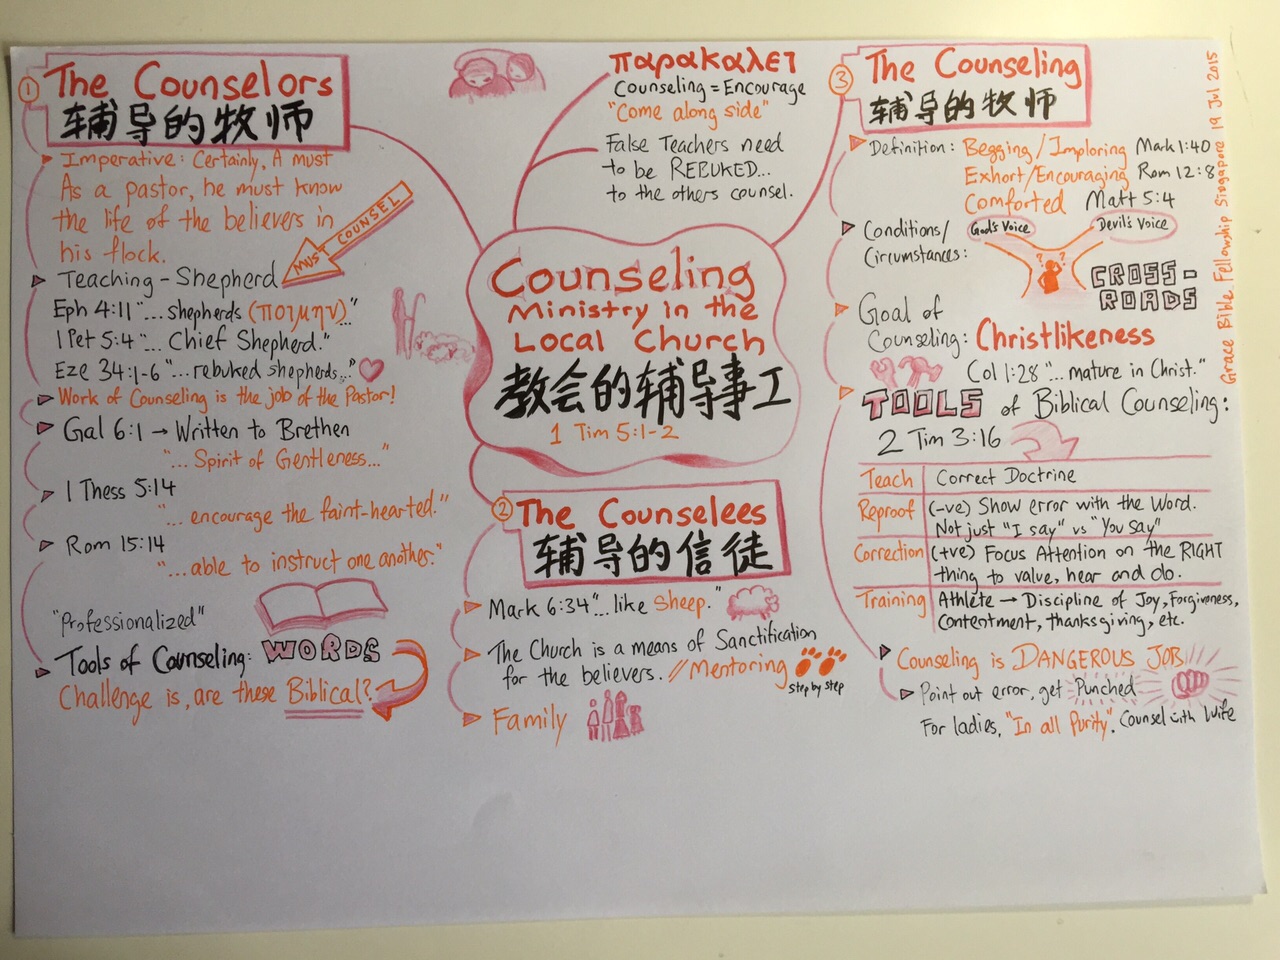 Counseling
Ministry in the
Local Church
教会的辅导事工
1 Tim 5:1-2
παρακαλει
Counseling = Encourage
"Come along side"
False Teachers need
to be REBUKED...
to the others counsel.
① The Counselors
辅导的牧师
Imperative: Certainly, A must
As a pastor, he must know
the life of the believers in
his flock.
MUST COUNSEL
Teaching - Shepherd
Eph 4:11 "... shepherds (ποιμην)..."
1 Pet 5:4 "... Chief Shepherd."
Eze 34:1-6 "...rebuked shepherds..."
Work of Counseling is the job of the Pastor!
Gal 6:1 → Written to Brethen
"... Spirit of Gentleness..."
1 Thess 5:14
"... encourage the faint-hearted."
Rom 15:14
"...able to instruct one another."
"Professionalized"
Tools of Counseling: WORDS
Challenge is, are these Biblical?
② The Counselees
辅导的信徒
Mark 6:34 "...like Sheep."
The Church is a means of Sanctification
for the believers. // Mentoring
step by step
Family
③ The Counseling
辅导的牧师
Definition: Begging / Imploring Mark 1:40
Exhort/Encouraging Rom 12:8
Comforted Matt 5:4
Conditions/
Circumstances:
God's Voice Devil's Voice
? ?
CROSS-
ROADS
Goal of
Counseling: Christlikeness
Col 1:28 "...mature in Christ."
TOOLS of Biblical Counseling:
2 Tim 3:16
Teach Correct Doctrine
Reproof (-ve) Show error with the Word.
Not just "I say" vs "You say"
Correction (+ve) Focus Attention on the RIGHT
thing to value, hear and do.
Training Athlete → Discipline of Joy, Forgiveness,
Contentment, thanksgiving, etc.
Counseling is DANGEROUS JOB
Point out error, get Punched
For ladies, "In all Purity". Counsel with Wife
Grace Bible Fellowship Singapore 19 Jul 2015